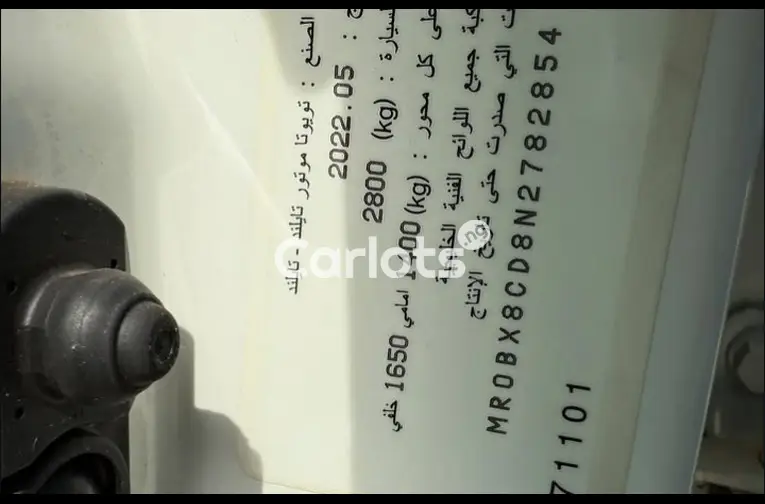 الصنع : تويوتا موتور تايلند - تايلند
2022.05 :
السيارة : (kg) 2800
على كل محور : (kg) 1400 امامي 1650 خلفي
جميع اللوائح الفنية
التي صدرت حتى الإنتاج
MR0BX8CD8N2782854
71101
Carlots.ng